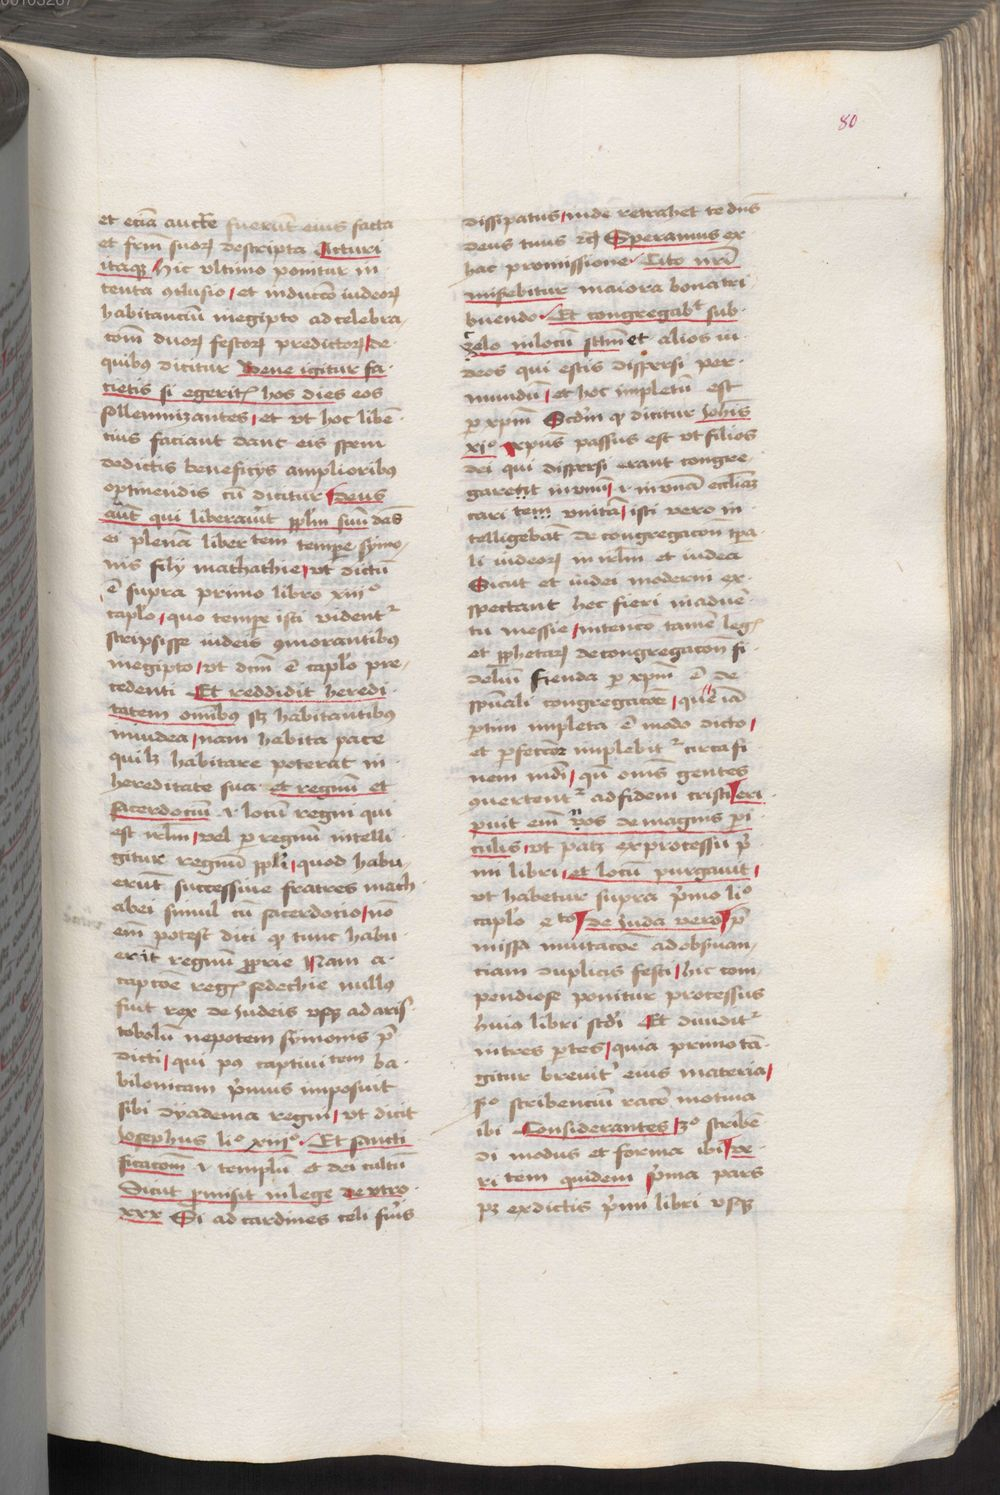 80
et eciā auctē fuerūt eius facta
et frm̄ suoꝝ descripta Acturi
itaqꝫ hic vltimo ponitur in
tenta ꝯclusio et inducco iudeoꝝ
habitanciū inegipto ad celebra
com̄ duoꝝ festoꝝ predictoꝝ de
quibꝰ dicitur Bene igitur fa
cietis si egeritꝭ hos dies eos
sollemnizantes et vt hoc libē
cius faciant danc eis spem
de dictis beneficijs amplioribꝰ
optinendis cū dicitur Deus
aūt qui liberauit pplm̄ suū dās
ei plenā libertem tempe symo
nis filij mathathie vt dictū
ē supra primo libro xiijº
caplo quo tempe isti vident᷑
scripsisse iudeis ꝯmorantibꝰ
inegipto vt dcm̄ ē caplo pre
cedenti Et reddidit heredi
tatem omibꝰ sꝫ habitantibꝰ
iniudea nam habita pace
quilꝫ habitare poterat in
hereditate sua et regnū et
sacerdociū .i. locū regni qui
est irlm̄ vel ꝑ regnū intelli
gitur regnū ppli quod habu
erūt successiue fratres mach
abei simul cū sacerdocio nō
em̄ potest dici ꝙ tunc habu
erit regnū proprie Nam a
captōe regꝭ sedechie nullus
fuit rex de Iudeis vsqꝫ ad aris
tobolū nepotem symonis p̄
dicti qui pꝰ captiuitem ba
bilonicam p̄mus imposuit
sibi dyadema regni vt dicit
Iosephus liº xiijº Et sancti
ficacom̄ .i. templū et dei cultū
Sicut ꝓmisit inlege deutro
xxx Si ad cardines celi fuīs
dissipatus inde retrahet te dns
deus tuus ⁊cꝫ Speramus ex
hac promissione Cito nrī
misebitur maiora bona tri
buendo Et congregabt sub
celo inlocū sctm̄ et alios iu
deos qui estis dispersi per
mundū et hoc impletū est
ꝑ xpm̄ Scdm̄ ꝙ dicitur Iohis
xiº xpus passus est vt filios
dei qui dispersi erant congre
garent in vnū .i. in vnā eccliaꝫ
cari tem vnitā isti vero in
telligebāt de congregacon̄ tpa
li iudeoꝝ in irlm̄ et iudea
Sicut et iudei moderni ex
spectant hec fieri inaduē
tu messie intenco tamē legꝭ
et pphetaꝝ de congregacon̄ fi
deliū fienda ꝑ xpm̄ ē de
spūali congregacōe que iā
ptim impleta ē modo dicto
et ꝑfectoꝫ implebit᷑ circa fi
nem mdi qn̄ om̄s gentes
ꝯuertent᷑ ad fidem cristi Eri
puit em̄ vos de magnis pi
culis vt patꝫ ex processu p̄
mi libri et locū purgauit
vt habetur supra p̄mo liº
caplo e to de Iuda vero p̄
missa inuitacōe ad obseruan
ciam duplicis festi hic com
pendiose ponitur processus
huiꝰ libri scdi Et diuidit᷑
intres ptes quia primo tā
gitur breuit᷑ eius materia
sº scribenciū raco motiua
ibi Considerantes 3º scribē
di modus et forma ibi ve
ri tem quidem p̄ma pars
pꝫ ex dictis p̄mi libri vsqꝫ